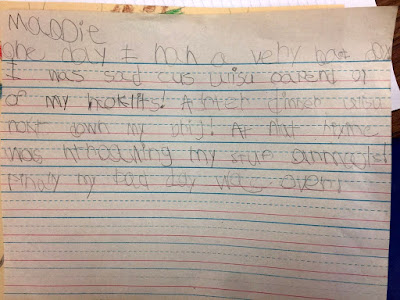 Maddie
One day I hah a very bad day
I was sad cus wisu parend of
of my broklits! After dinner wisu
nokt down my ! At nhat tyme
was nthrowing my stuf anmools!
Finaly my bad day was over!